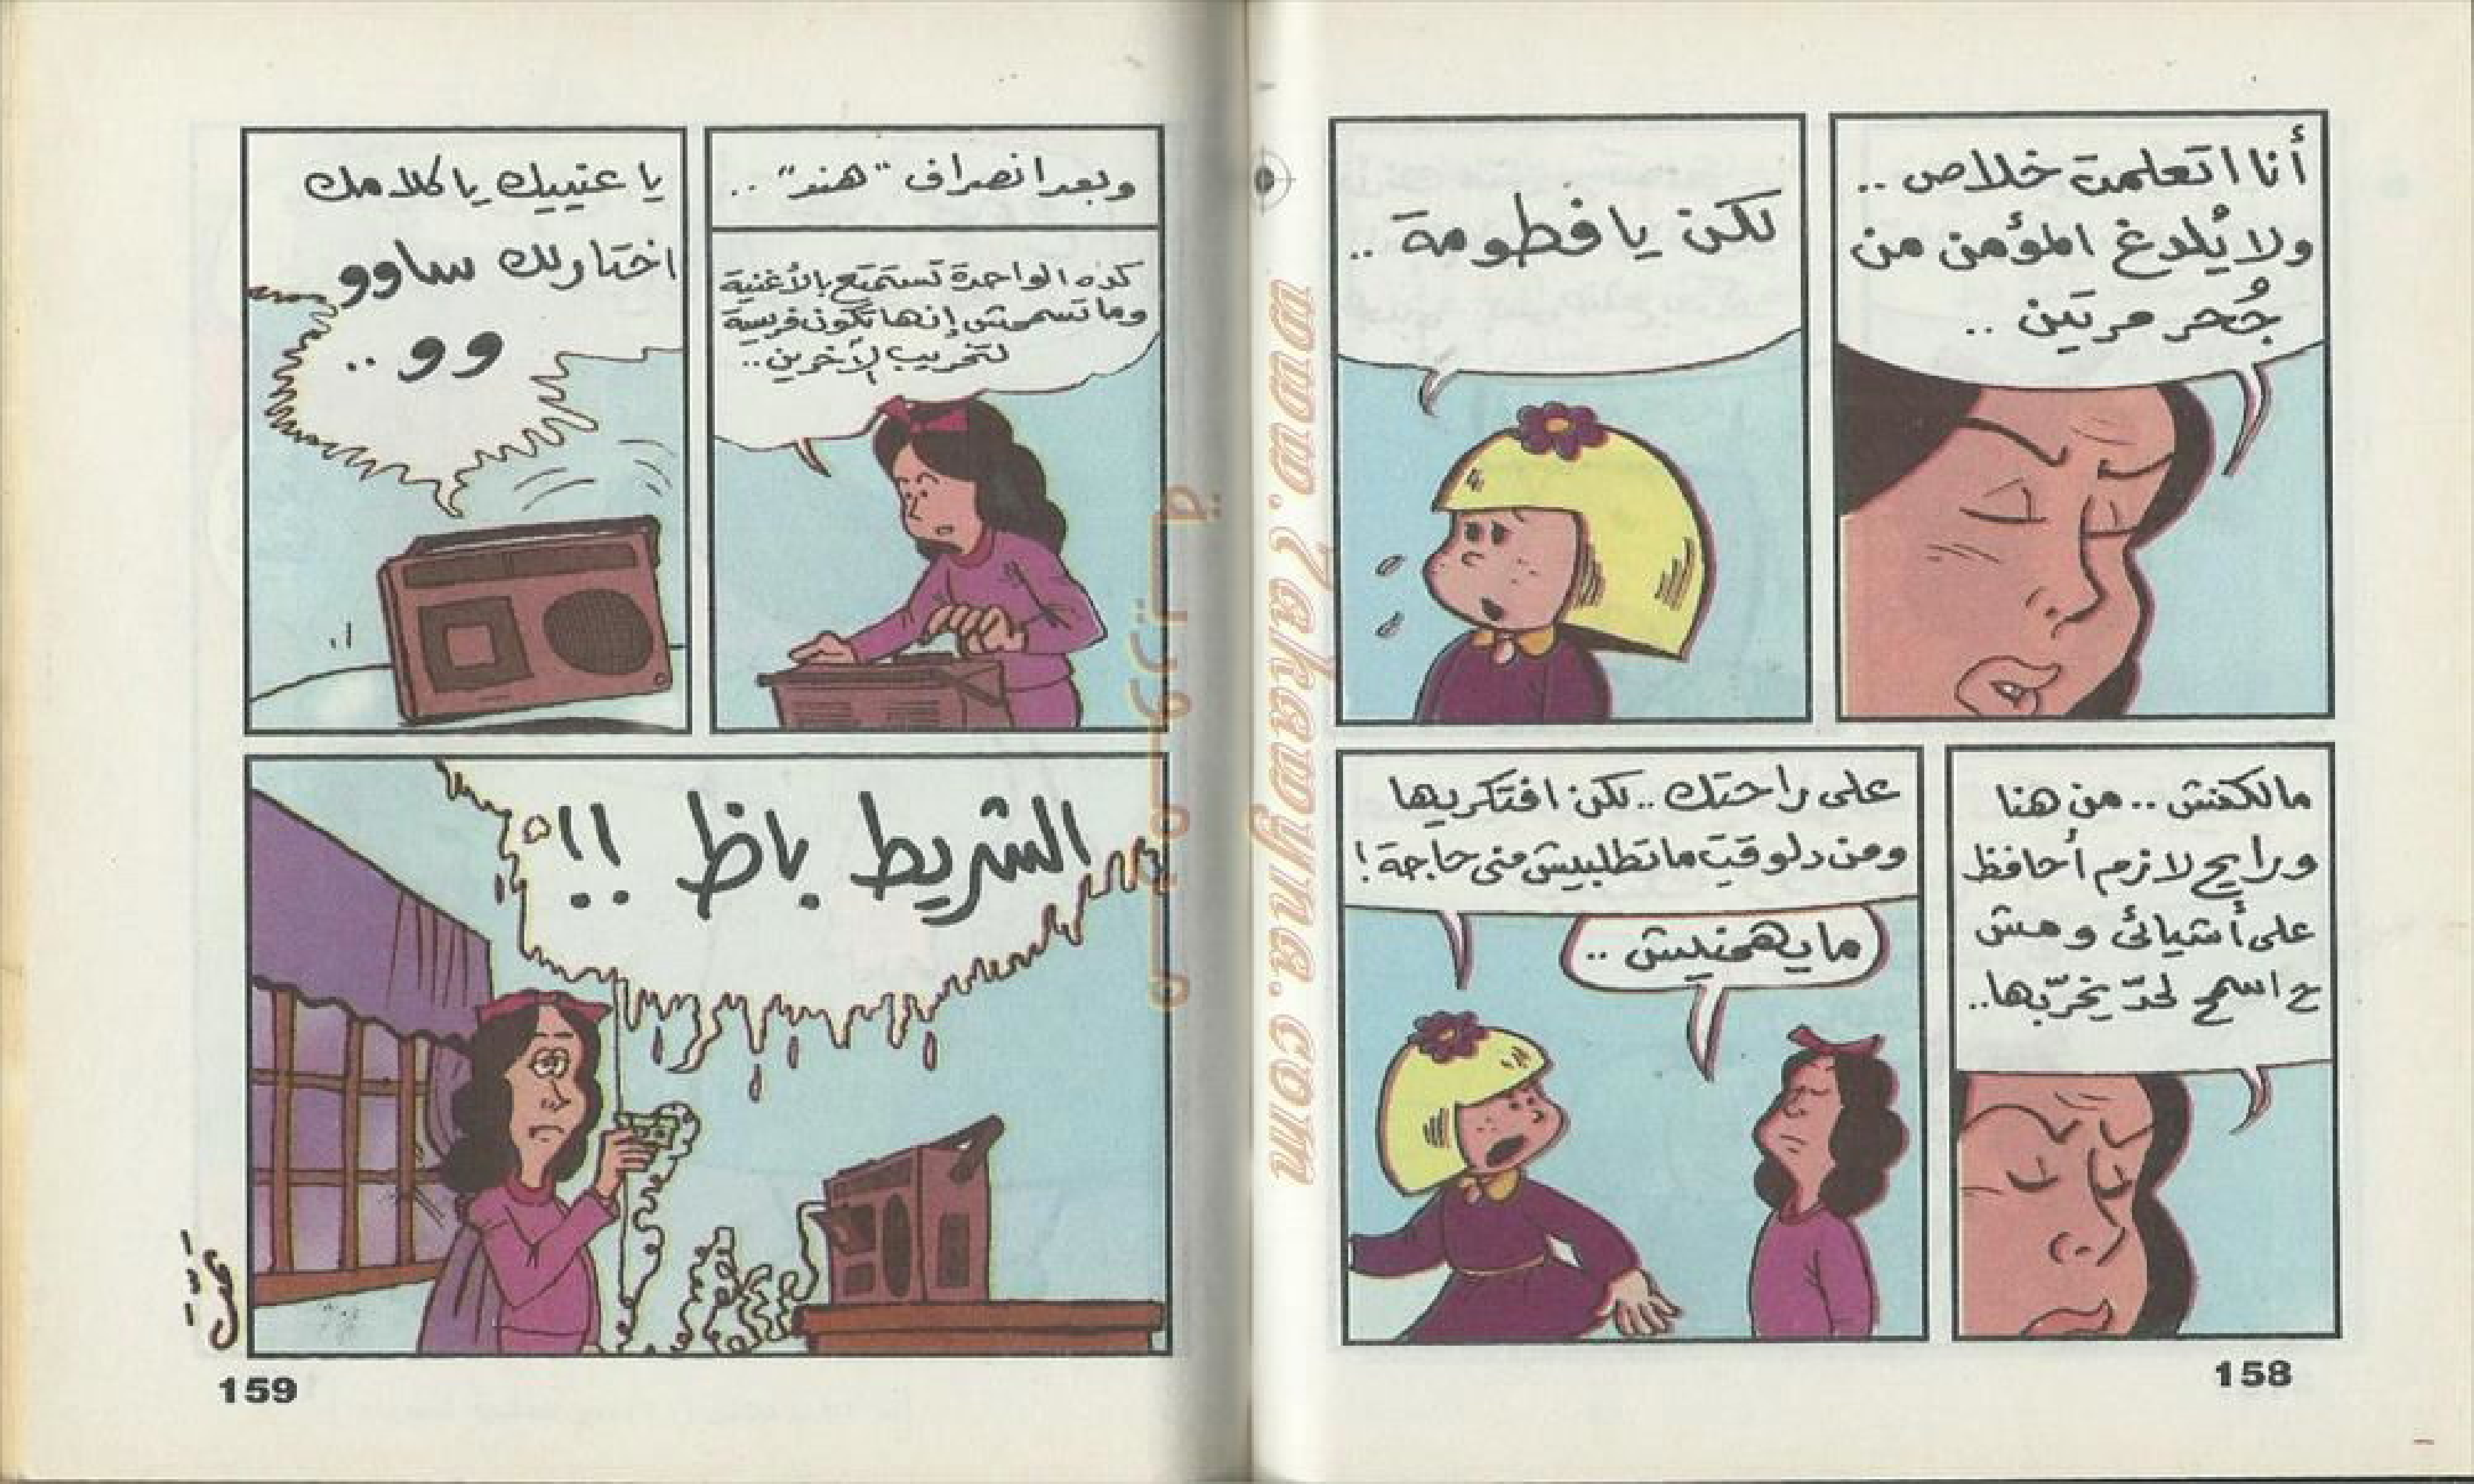 أنا اتعلمت خلاص ..
ولا يُلدغ المؤمن من
جُحر مرتين ..
لكن يا فطومة ..
مالكفش .. من هنا
ورايح لازم أحافظ
على أشيائى ومش
ح اسمح لحدّ يخرّبها..
على راحتك .. لكن افتكريها
ومن دلوقت ما تطلبيش منى حاجة !
ما يهمنيش ..
158
وبعد انصراف "هند" ..
كده الواحدة تستمتع بالأغنية
وما تسمحش إنها تكون فريسة
لتخريب الآخرين ..
يا عنيك يا كلامك
اختارلك ساوو
وو ..
الشريط باظ !!
159
www.7akawyna.com